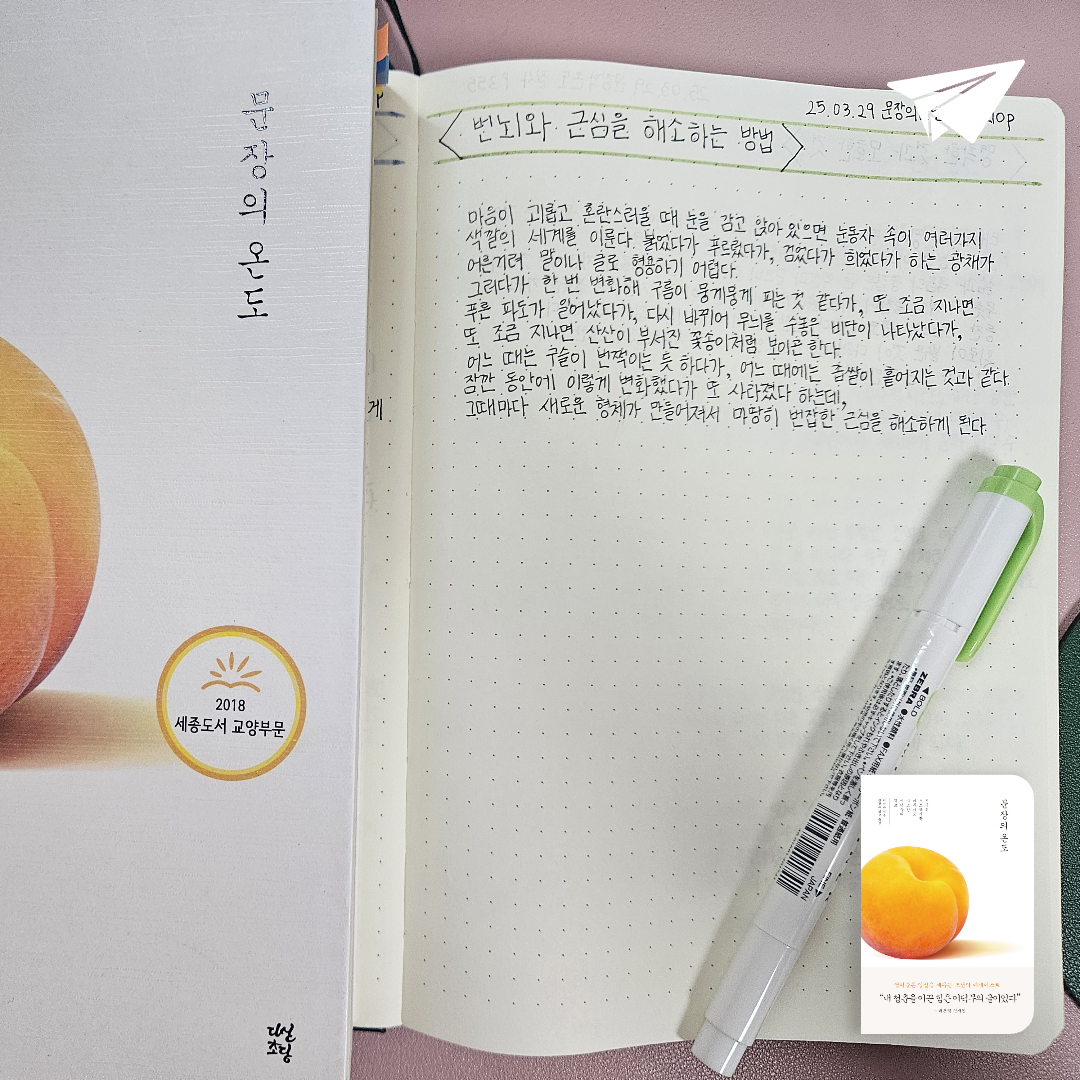 문장의 온도
2018
세종도서 교양부문
다실
초당
게
25.03.29 문장의
번뇌와 근심을 해소하는 방법
마음이 괴롭고 혼란스러울 때 눈을 감고 앉아 있으면 눈동자 속이 여러가지
색깔의 세계를 이룬다. 붉었다가 푸르렀다가, 검었다가 희었다가 하는 광채가
어른거려 말이나 글로 형용하기 어렵다.
그러다가 한 번 변화해 구름이 뭉게뭉게 피는 것 같다가, 또 조금 지나면
푸른 파도가 일어났다가, 다시 바뀌어 무늬를 수놓은 비단이 나타났다가,
또 조금 지나면 산산이 부서진 꽃송이처럼 보이곤 한다.
어느 때는 구슬이 번쩍이는 듯 하다가, 어느 때에는 좁쌀이 흩어지는 것과 같다.
잠깐 동안에 이렇게 변화했다가 또 사라졌다 하는데,
그때마다 새로운 형체가 만들어져서 마땅히 번잡한 근심을 해소하게 된다.
ZEBRA
BOLD
JAPAN
문장의 온도